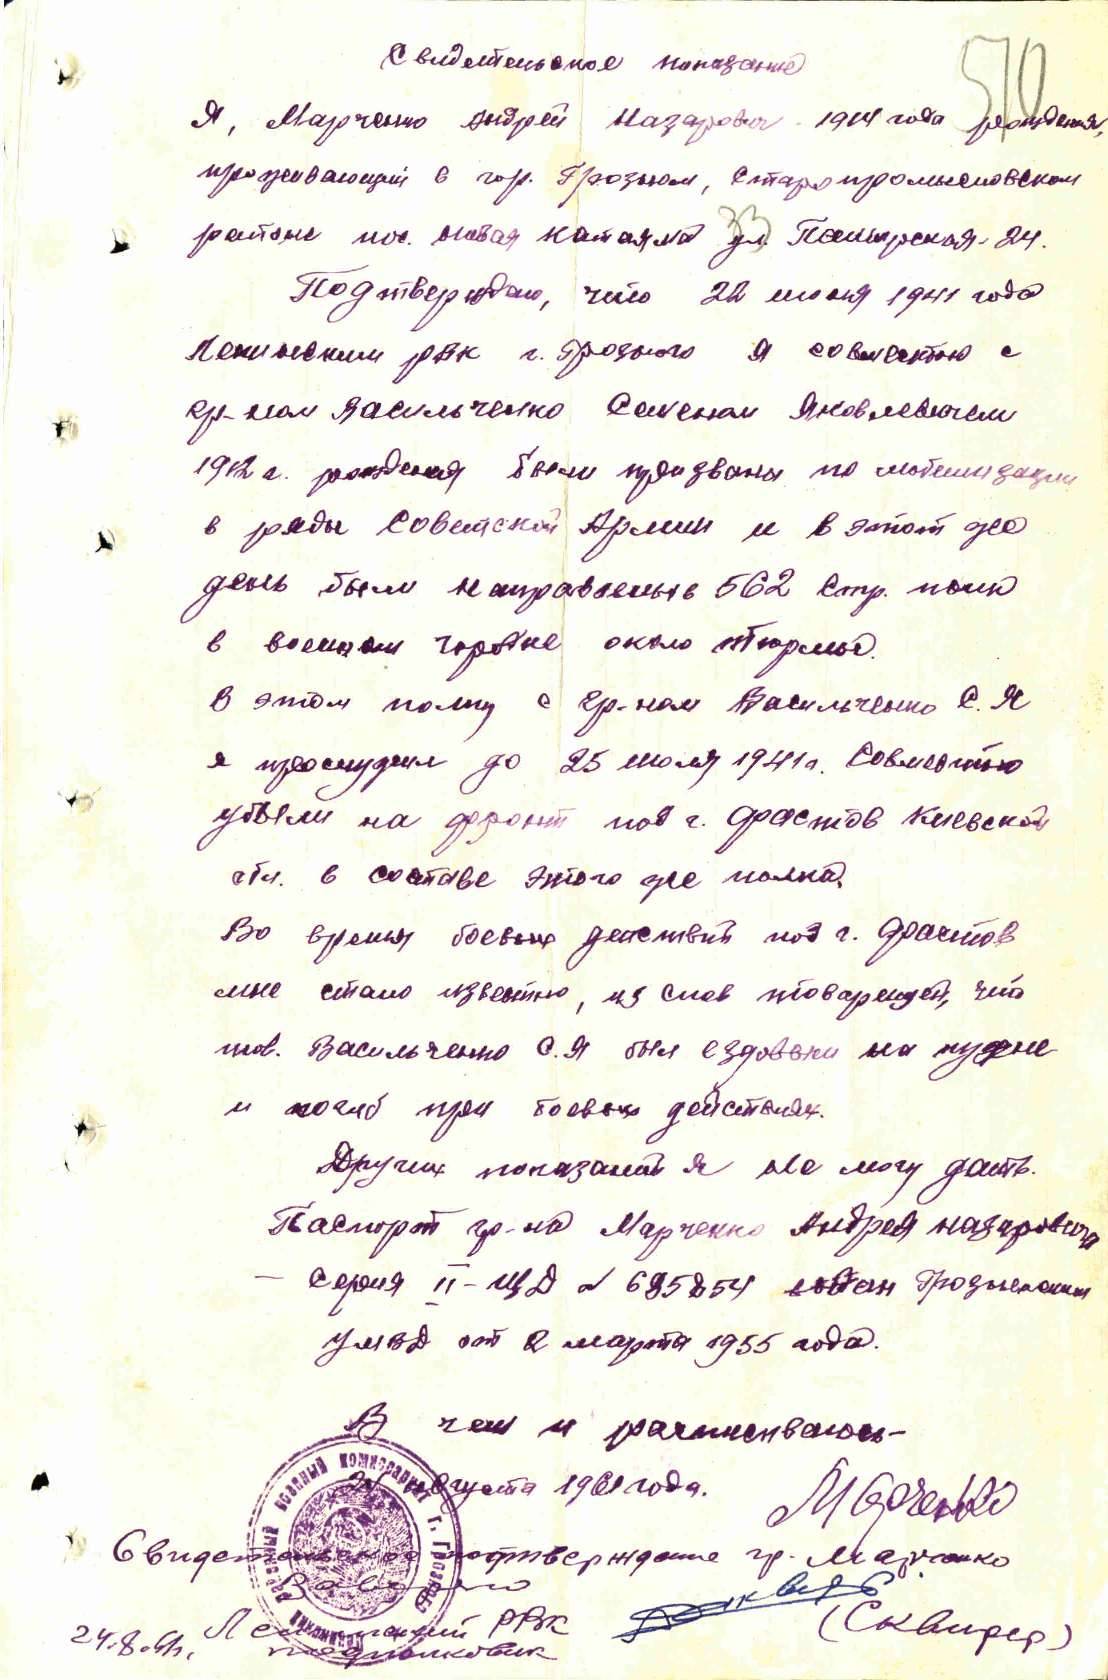 Свидетельское показание
570
Я, Марченко Андрей Назарович 1914 года рождения,
проживающий в гор. Грозном, Старопромысловском
районе пос. новая катаяма ул. Памирская-24.
33
Подтверждаю, что 22 июня 1941 года
Ленинским РВК г. Грозного я совместно с
гр-ном Васильченко Семеном Яковлевичем
1912 г. рождения были призваны по мобилизации
в ряды Советской Армии и в этот же
день были направлены в 562 стр. полк
в военном городке около тюрьмы.
В этом полку с гр-ном Васильченко С. Я
я прослужил до 25 июля 1941 г. Совместно
убыли на фронт под г. Фастов Киевской
обл. в составе этого же полка.
Во время боевых действий под г. Фастов
мне стало известно, из слов товарищей, что
тов. Васильченко С. Я был ездовым на кухне
и погиб при боевых действиях.
Других показаний я не могу дать.
Паспорт гр-на Марченко Андрея Назаровича
— серия II-ЩД № 685854 выдан Грозненским
УМВД от 2 марта 1955 года.
В чем и расписываюсь-
августа 1961 года. Марченко
Свидетельское подтверждение гр. Марченко
Ленинский РВК
(Сквирер)
24.8.61г. подполковник
Ленинский районный военный комиссариат г. Грозного